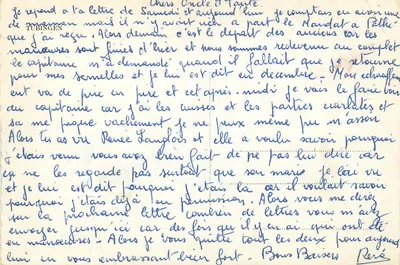 Chers Oncle et Tante
Je repond a ta lettre de Samedi et aujourd'hui je comptais en avoir une
de maman mais il n'y avait rien a part le Mandat a Pathé
que j'ai reçu. Alors demain c'est le depart des anciens car les
manœuvres sont finies d'hier et nous sommes redevenu au complet
le capitaine m'a demandé quand il fallait que je retourne
pour mes semelles et je lui est dit en decembre. Mon echauffem
ent va de pire en pire et cet après-midi je vais le faire voir
au capitaine car j'ai les cuisses et les parties
sa me pique vachement je ne peux même pas m'asseoir
Alors tu as vu Renée Langlois et elle a voulu savoir pourquoi
j'étais venu vous avez bien fait de ne pas lui dire car
ça ne les regarde pas surtout que son mario je l'ai vu
et je lui est dit pourquoi j'étais la car il voulait savoir
pourquoi j'étais déjà en permission. Alors vous me direz
sur la prochaine lettre combien de lettres vous m'avez
envoyer jusqu'ici car des fois qu'il y en ai qui ont été
en manœuvres - Alors je vous quitte tout les deux pour aujourd
hui en vous embrassant bien fort - Bons Baisers René